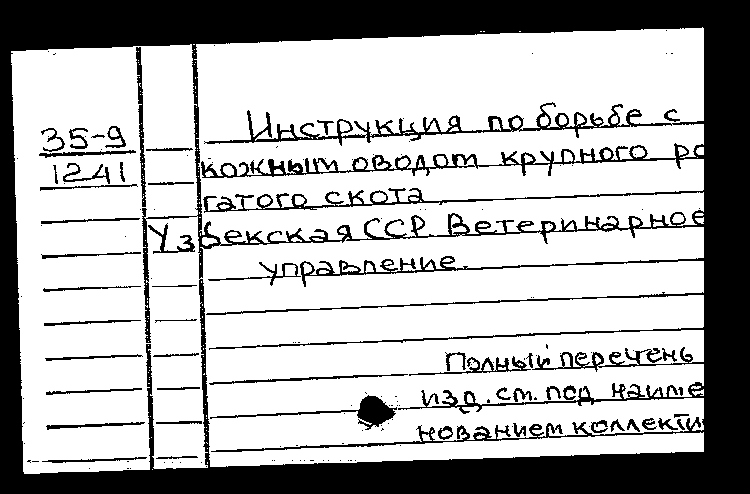 35-9
1241
Инструкция по борьбе с
кожным оводом крупного ро
гатого скота.
Узбекская ССР Ветеринарное
управление.
Полный перечень
изд. см. под наиме
нованием коллекти